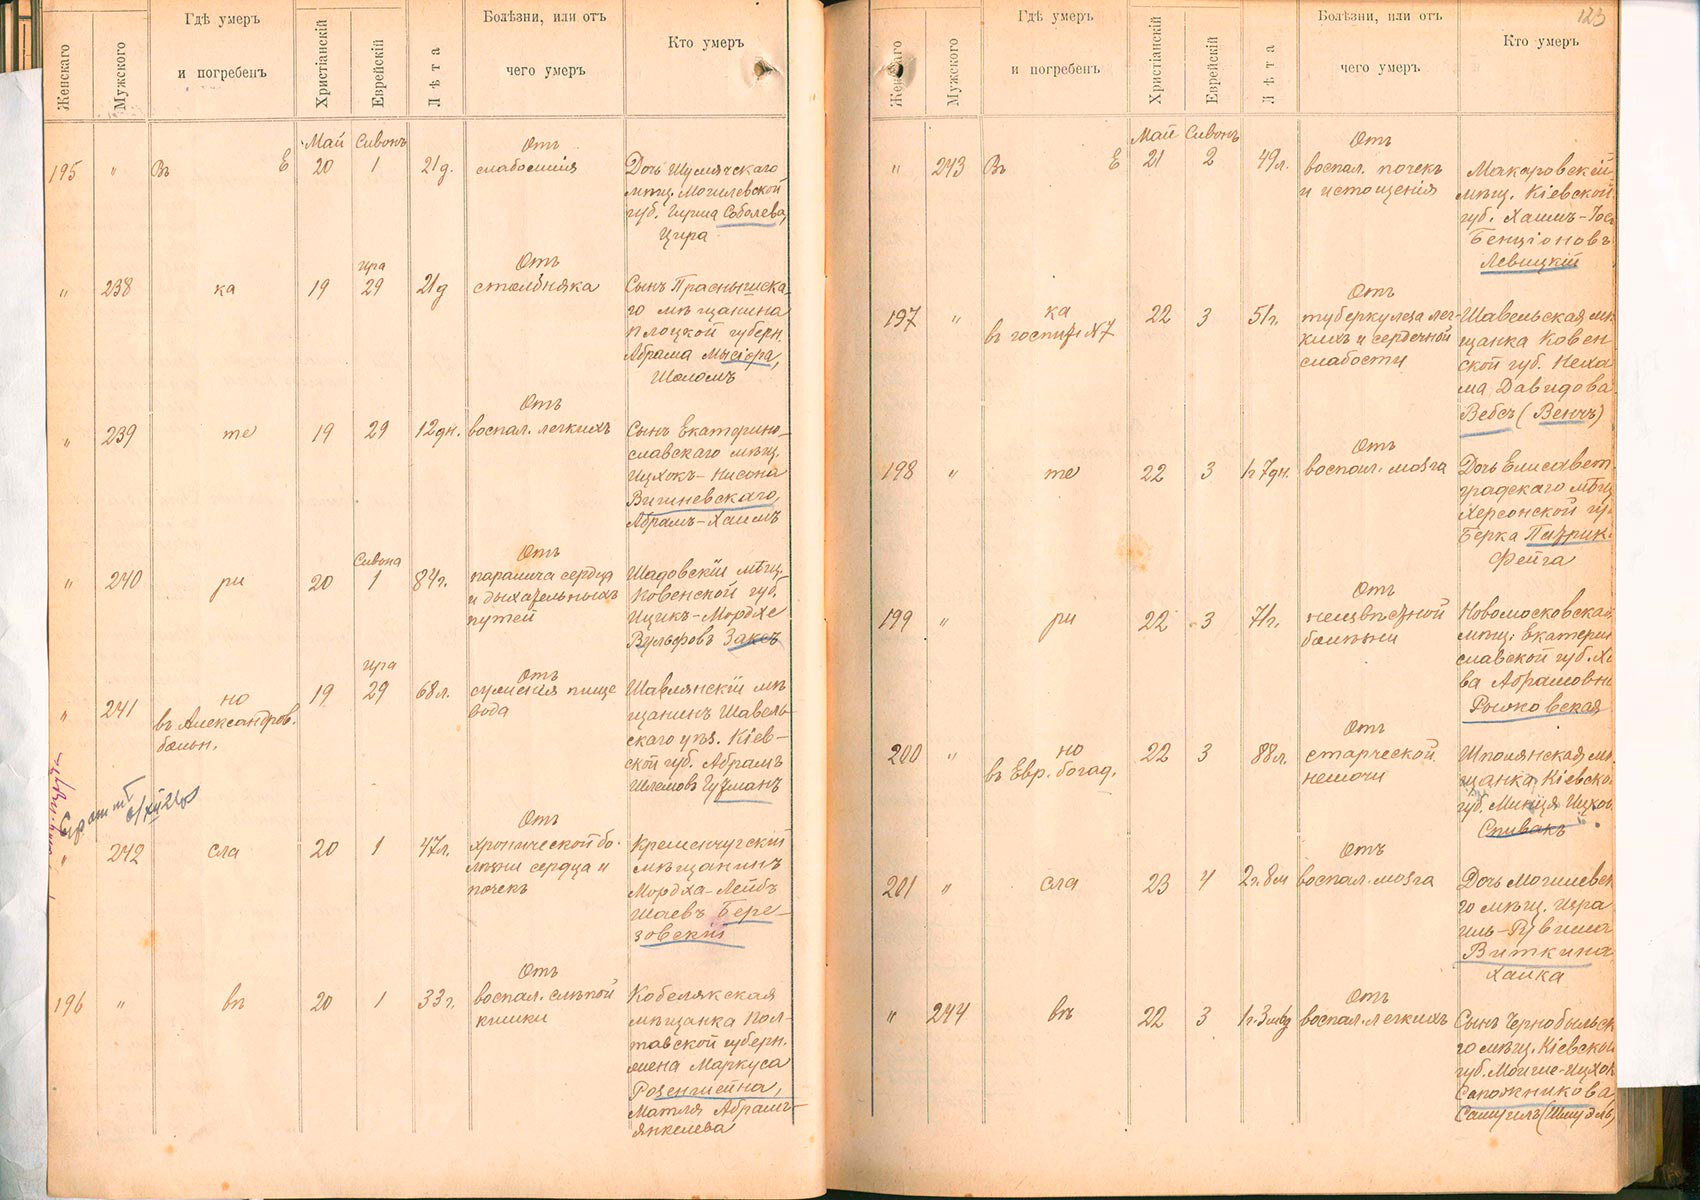 Женскаго
Мужского
Гдѣ умеръ
и погребенъ
Христіанскій
Еврейскій
Лѣта
Болѣзни, или отъ
чего умеръ
Кто умеръ
Май Сивонъ
195 " Въ Е 20 1 21д.
Отъ
слабосилія
Дочь Шумячскаго
мѣщ. Могилевской
губ. Гирша Соболева,
Цира
" 238 ка 19
Ира
29 21д
Отъ
столбняка
Сынъ Праснышска-
го мѣщанина
Плоцкой губерн.
Абрама Мысіора,
Шоломъ
" 239 те 19 29 12дн.
Отъ
воспал. легкихъ
Сынъ Екатерино-
славскаго мѣщ.
Ицхокъ-Нисона
Вишневскаго,
Абрамъ-Хаимъ
" 240 ри 20
Сивона
1 84г.
Отъ
паралича сердца
и дыхательныхъ
путей
Шадовскій мѣщ.
Ковенской губ.
Ицикъ-Мордхе
Вульфовъ Заксъ
" 241 но
въ Александров.
больн.
19
Ира
29 68л.
Отъ
суженія пище
вода
Шавлянскій мѣ
щанинъ Шавель-
скаго уѣз. Кіев-
ской губ. Абрамъ
Шлемовъ Гузманъ
" 242 сла 20 1 47л.
Отъ
хронической бо-
лѣзни сердца и
почекъ
Кременчугскій
мѣщанинъ
Мордха-Лейбъ
Шаевъ Бере-
зовскій
196 " въ 20 1 33г.
Отъ
воспал. слѣпой
кишки
Кобелякская
мѣщанка Пол-
тавской губерн.
жена Маркуса
Розенштейна,
Матля Абрамъ-
Янкелева
123
Женскаго
Мужского
Гдѣ умеръ
и погребенъ
Христіанскій
Еврейскій
Лѣта
Болѣзни, или отъ
чего умеръ
Кто умеръ
Май Сивонъ
" 243 Въ Е 21 2 49л.
Отъ
воспал. почекъ
и истощенія
Макаровскій
мѣщ. Кіевской
губ. Хаимъ-Іос
Бенціоновъ
Левицкій
197 " ка
въ госпит. №7
22 3 51г.
Отъ
туберкулеза лег-
кихъ и сердечной
слабости
Шавельская мѣ
щанка Ковен
ской губ. Неха
ма Давидова
Вебсъ (Венчъ)
198 " те 22 3 1г 7дн.
Отъ
воспал. мозга
Дочь Елисавет
градскаго мѣщ
Херсонской гу
Берка
Фейга
199 " ри 22 3 71г.
Отъ
неизвѣстной
болѣзни
Новомосковская
мѣщ. Екатерин
славской губ. Х
ва Абрамовн
200 " но
въ Евр. богад.
22 3 88л.
Отъ
старческой
немочи
Шполянская мѣ
щанка Кіевско
губ. Минця Ицков
Спивакъ
201 " сла 23 4 2г. 8м
Отъ
воспал. мозга
Дочь Могилевск
го мѣщ. Изра
иль-Рувима
Виткина
Хайка
" 244 въ 22 3 1г. 3мѣс
Отъ
воспал. легкихъ
Сынъ Чернобыльск
го мѣщ. Кіевской
губ. Мойше-Ицхок
Сапожникова,
Самуилъ (Шмуэль)